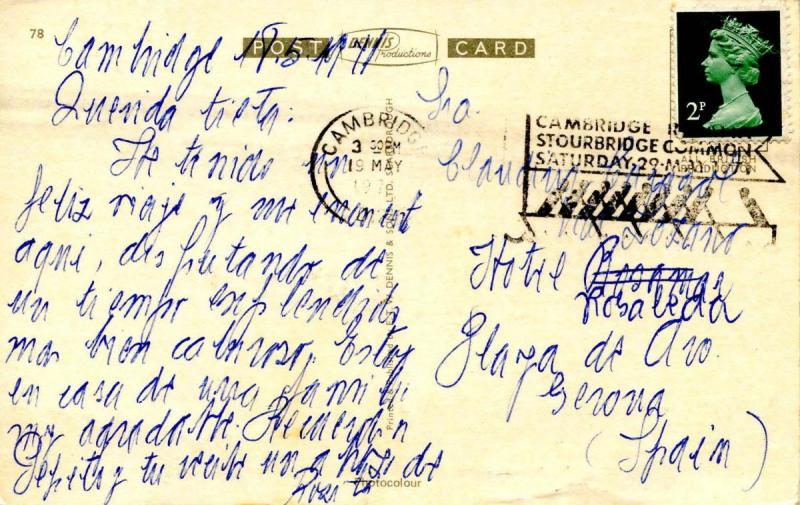 78
POST DENNIS Productions CARD
Cambridge 19.5.1971
Querida tieta:
He tenido un
feliz viaje y me encuentro
aqui, disfrutando de
un tiempo esplendido
mas bien caluroso. Estoy
en casa de una familia
muy agradable. Recuerdo a
Pepito y tu recibe un abrazo de
Rosa
CAMBRIDGE
3 30PM
19 MAY
CAMBRIDGE
STOURBRIDGE COMMON
SATURDAY 29 MAY
2P
Sra.
Claudina
Lozano
Hotel
Rosaleda
Playa de Aro.
Gerona
(Spain)
DENNIS & SONS LTD. SCARBOROUGH
Photocolour